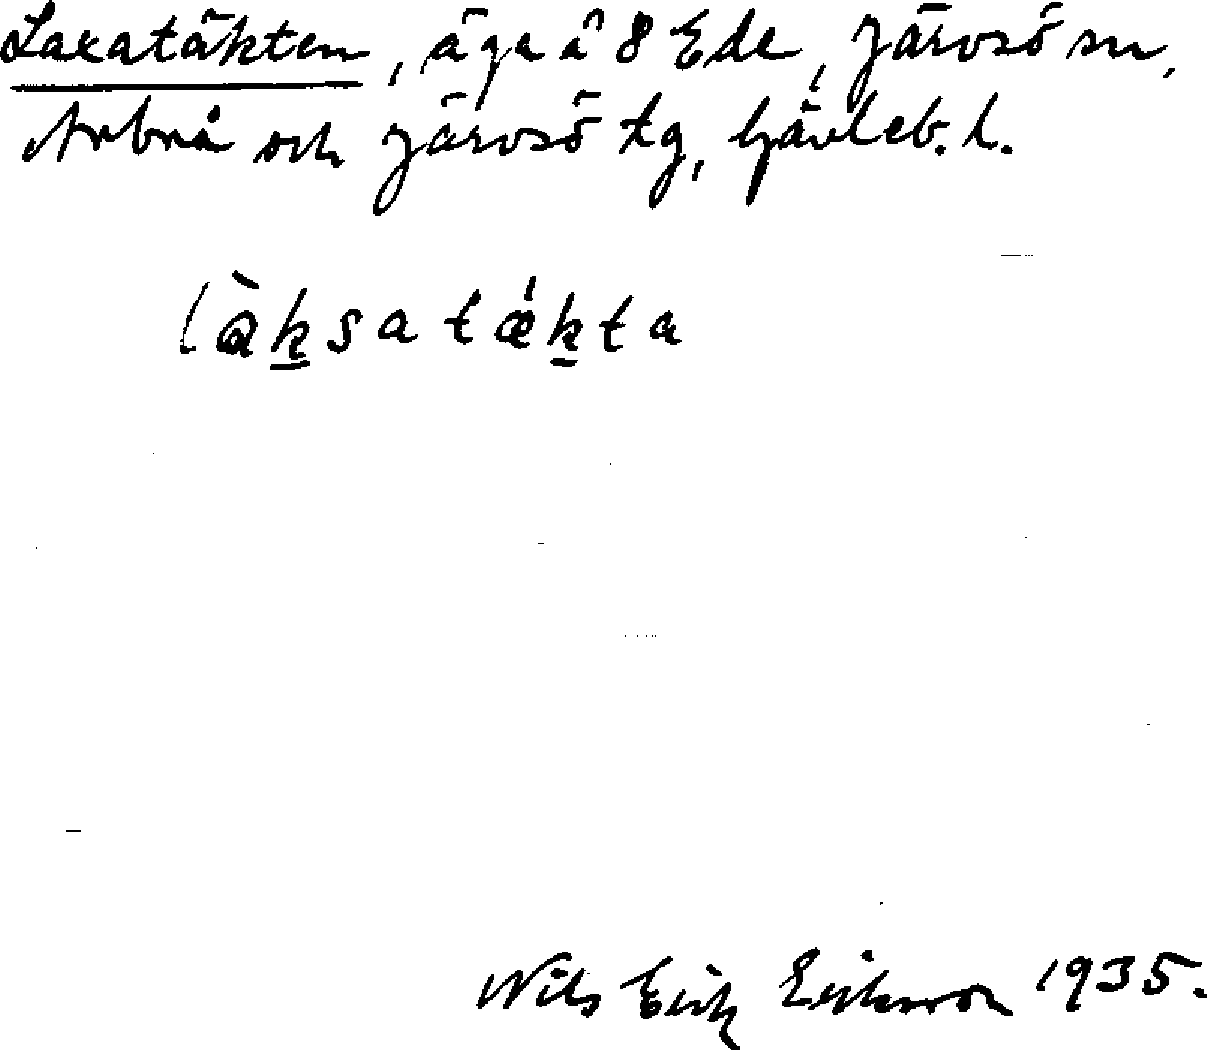 Laxatäkten, äga å 8 Ede, Järvsö sn,
Arbrå och Järvsö tg, Gävleb. l.
là̱ksatǽḵta
Nils Erik Eriksson 1935.